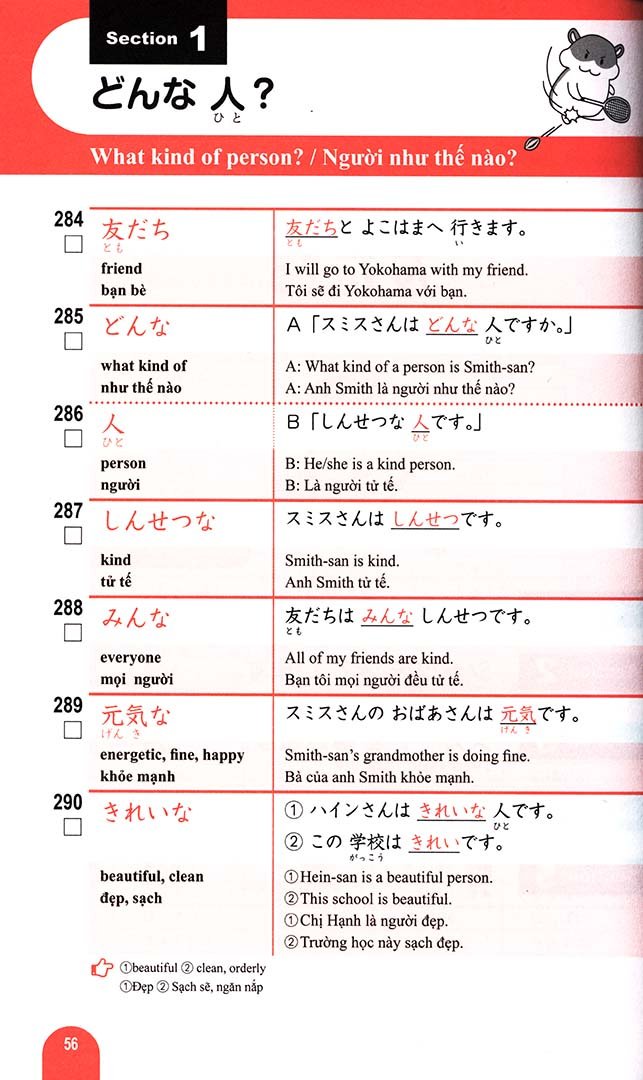 Section 1
どんな 人？
ひと
What kind of person? / Người như thế nào?
284
友だち
とも
友だちと よこはまへ 行きます。
とも い
friend
I will go to Yokohama with my friend.
bạn bè
Tôi sẽ đi Yokohama với bạn.
285
どんな
A「スミスさんは どんな 人ですか。」
ひと
what kind of
A: What kind of a person is Smith-san?
như thế nào
A: Anh Smith là người như thế nào?
286
人
ひと
B「しんせつな 人です。」
ひと
person
B: He/she is a kind person.
người
B: Là người tử tế.
287
しんせつな
スミスさんは しんせつです。
kind
Smith-san is kind.
tử tế
Anh Smith tử tế.
288
みんな
友だちは みんな しんせつです。
とも
everyone
All of my friends are kind.
mọi người
Bạn tôi mọi người đều tử tế.
289
元気な
げん き
スミスさんの おばあさんは 元気です。
げん き
energetic, fine, happy
Smith-san's grandmother is doing fine.
khỏe mạnh
Bà của anh Smith khỏe mạnh.
290
きれいな
① ハインさんは きれいな 人です。
ひと
② この 学校は きれいです。
がっこう
beautiful, clean
①Hein-san is a beautiful person.
đẹp, sạch
②This school is beautiful.
①Chị Hạnh là người đẹp.
②Trường học này sạch đẹp.
①beautiful ② clean, orderly
①Đẹp ② Sạch sẽ, ngăn nắp
56